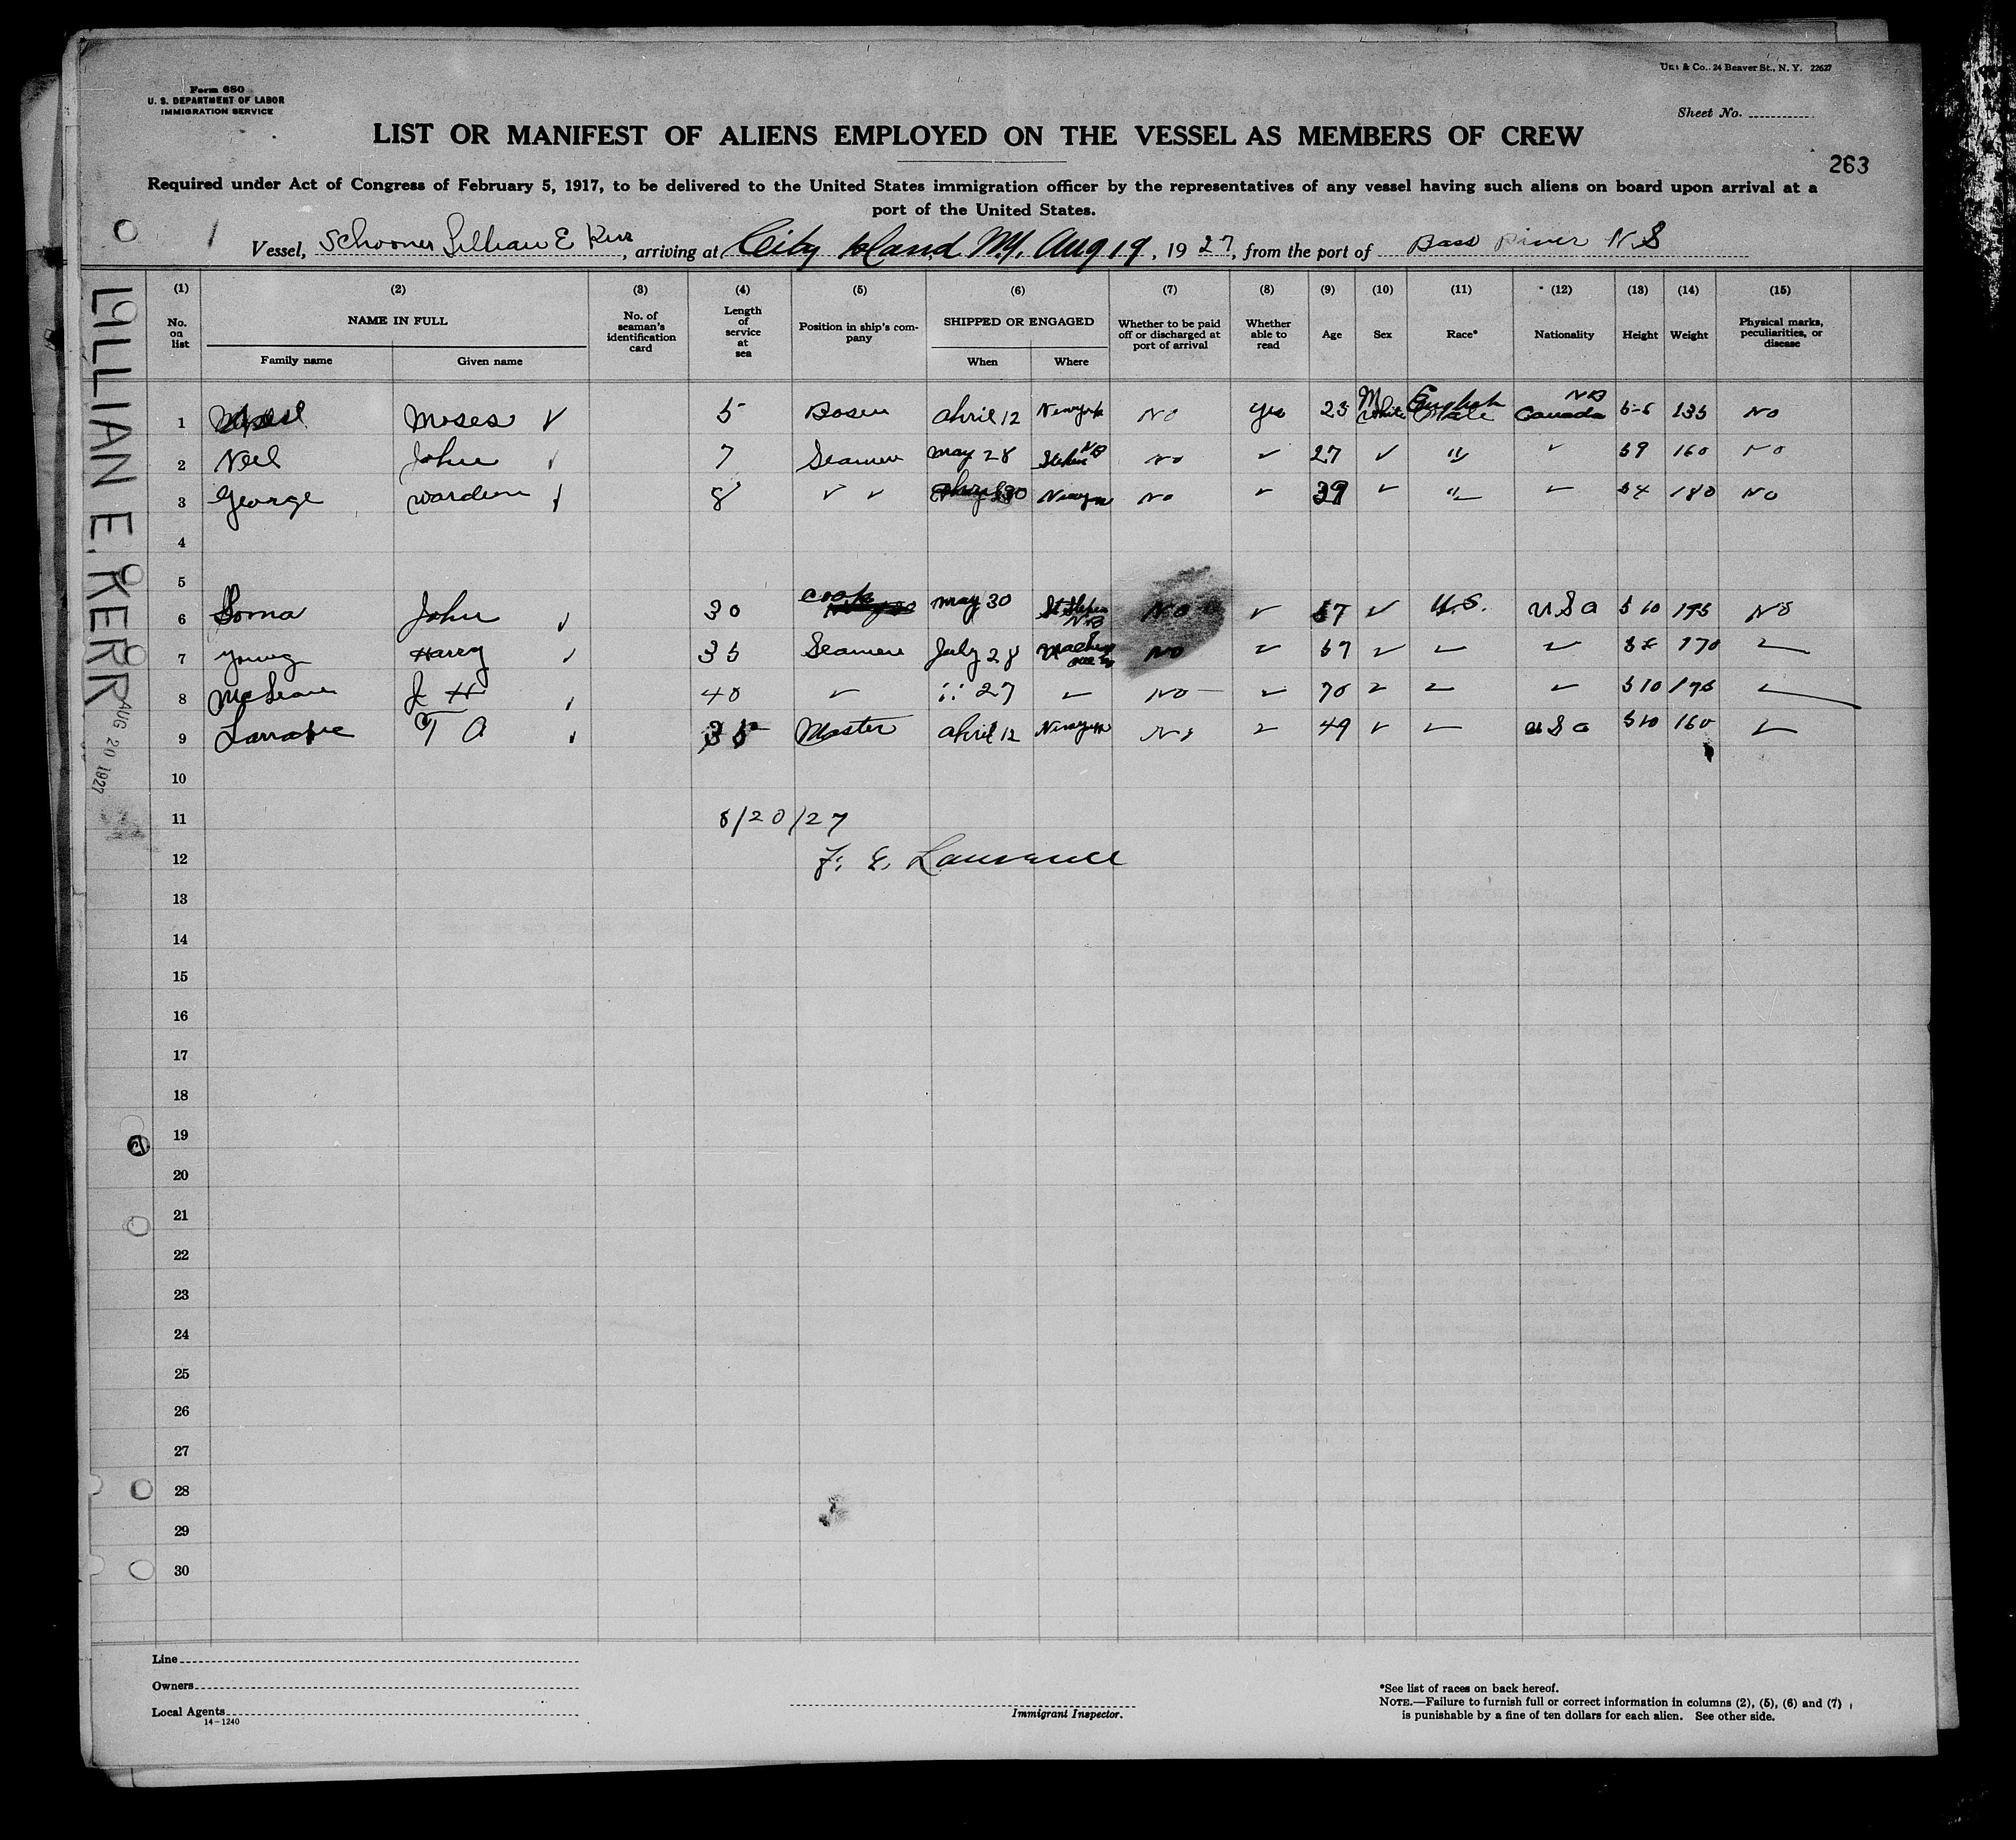 Form 680
U. S. DEPARTMENT OF LABOR
IMMIGRATION SERVICE
& Co., 24 Beaver St., N. Y. 22627
Sheet No.
LIST OR MANIFEST OF ALIENS EMPLOYED ON THE VESSEL AS MEMBERS OF CREW
263
Required under Act of Congress of February 5, 1917, to be delivered to the United States immigration officer by the representatives of any vessel having such aliens on board upon arrival at a
port of the United States.
Vessel, Schooner Lillian E Kerr, arriving at City Island N.Y. Aug 19, 1927, from the port of Bass River N.S
LILLIAN E. KERR
AUG 20 1927
(1) (2) (3) (4) (5) (6) (7) (8) (9) (10) (11) (12) (13) (14) (15)
No. on list NAME IN FULL No. of seaman's identification card Length of service at sea Position in ship's company SHIPPED OR ENGAGED Whether to be paid off or discharged at port of arrival Whether able to read Age Sex Race* Nationality Height Weight Physical marks, peculiarities, or disease
Family name Given name When Where
1 Moses 5 Bosen April 12 Newyork No Yes 23 M White English Male NB Canada 5-6 135 No
2 Neel John 7 Seamen May 28 Stephen NB No 27 " 59 160 No
3 George Wardem 8 Newyork No 39 " 54 180 No
4
5
6 John 30 Cook May 30 St Stephen NB No 57 U.S. USA 510 175 No
7 Young Harry 35 Seamen July 28 No 59 170
8 McLean J H 40 " 27 No 70 510 175
9 T A 35 Master April 12 Newyork No 49 USA 510 160
10
11 8/20/27
12 F. E. Lawrence
13
14
15
16
17
18
19
20
21
22
23
24
25
26
27
28
29
30
Line
Owners
Local Agents
14-1240
Immigrant Inspector.
*See list of races on back hereof.
NOTE.—Failure to furnish full or correct information in columns (2), (5), (6) and (7)
is punishable by a fine of ten dollars for each alien. See other side.